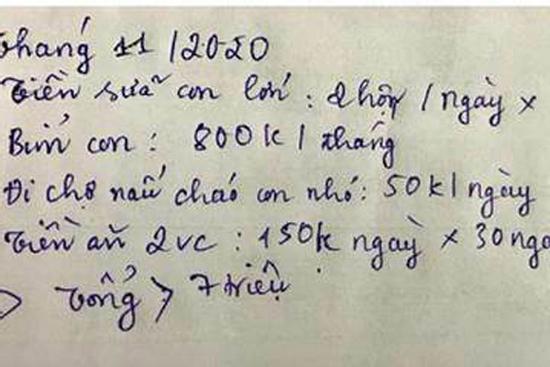 Tháng 11/2020
Tiền sữa con lớn: 2 hộp / ngày ×
Bỉm con: 800k / tháng
Đi chợ nấu cháo con nhỏ: 50k / ngày
Tiền ăn 2vc: 150k ngày × 30 ngà
Tổng > 7 triệu